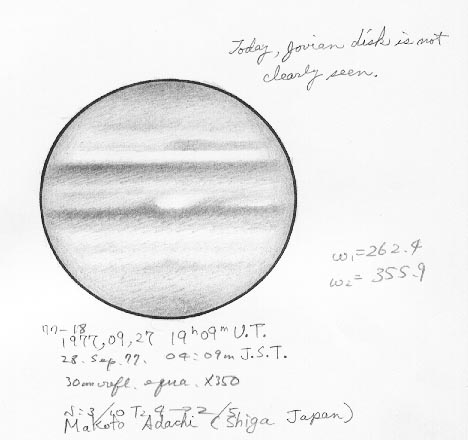 Today, Jovian disk is not
clearly seen.
ω₁=262.4
ω₂=355.9
77-18
1977,09,27 19ʰ09ᵐ U.T.
28. Sep. 77. 04:09m J.S.T.
30cm refl. equa. X350
Makoto Adachi (Shiga Japan)